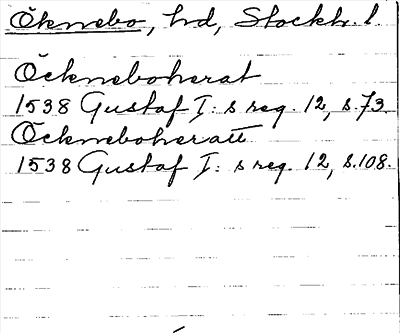 Öknebo, hd, Stockh. l.
Öckneboherat
1538 Gustaf I: s reg. 12, s. 73.
Öckneboheratt
1538 Gustaf I: s reg. 12, s. 108.